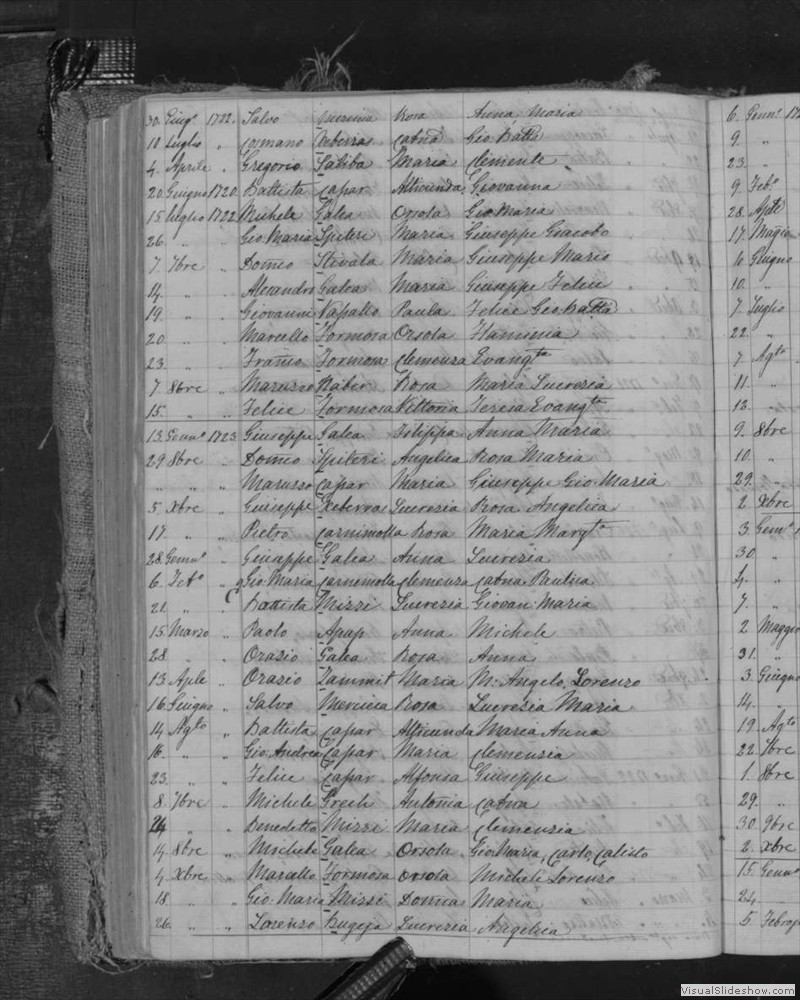 30. Giugo 1722. Salvo Mercieca Rosa Anna Maria
10 Luglio " Cosmano Xeberras Catna Gio Batta
4. Aprile " Gregorio Habiba Maria Clemente
20. Giugno 1720. Battista Capar Alticunda Giovanna
15 Luglio 1722 Michele Galea Orsola Gio Maria
26. " " Gio Maria Spiteri Maria Giuseppe Giacobo
7. 7bre " Domco Stivala Maria Giuseppe Mario
14. " " Alexandro Galea Maria Giuseppe Felice
19. " " Giovanni Vapallo Paula Felice Gio Batta
20 " " Marcello Formosa Orsola Flaminia
23. " " Franco Formosa Clemenza Evangta
7. 8bre " Maruzzo Rosa Maria Lucrezia
15. " " Felice Formosa Vittoria Teresa Evangta
13. Gennо 1723. Giuseppe Galea Filippa Anna Maria
29. 8bre " Domco Spiteri Angelica Rosa Maria
" " " Maruzzo Capar Maria Giuseppe Gio Maria
5. Xbre " Giuseppe Xeberras Lucrezia Rosa Angelica
17. " " Pietro Carnimolla Rosa Maria Margta
28. Genno " Giuseppe Galea Anna Lucrezia
6. Febo " Gio Maria Carnemolla Clemenza Catna Paulica
21. " " Battista Mizzi Lucrezia Giovan Maria
15. Marzo " Paolo Apap Anna Michele
28. " " Orazio Galea Rosa Anna
13. Aple " Orazio Zammit Maria M: Angelo, Lorenzo
16. Giugno " Salvo Mercieca Rosa Lucrezia Maria
14. Agto " Battista Capar Alticunda Maria Anna
16. " " Gio Andrea Capar Maria Clemenzia
23. " " Felice Capar Alfonsa Giuseppe
8. 7bre " Michele Grech Antonia Catna
24 " " Benedetto Mizzi Maria Clemenzia
14. 8bre " Michele Galea Orsola Gio Maria, Carlo, Calisto
4. Xbre " Marcello Formosa Orsola Michele Lorenzo
18. " " Gio. Maria Mizzi Domca Maria
26. " " Lorenzo Bugeja Lucrezia Angelica
6. Genno 172
9. "
23. "
9. Febo
28. Aple
17. Magio
6. Giugno
10. "
7. Luglio
22. "
7. Agto
11. "
13. "
9. 8bre
10. "
29. "
2. Xbre
3. Genno
30 "
4. "
7. "
2. Maggio
31. "
3. Giugno
14. "
19. Agto
22. 7bre
1. 8bre
29. "
30. 9bre
2. Xbre
15. Genno
24. "
5. Febro
VisualSlideshow.com